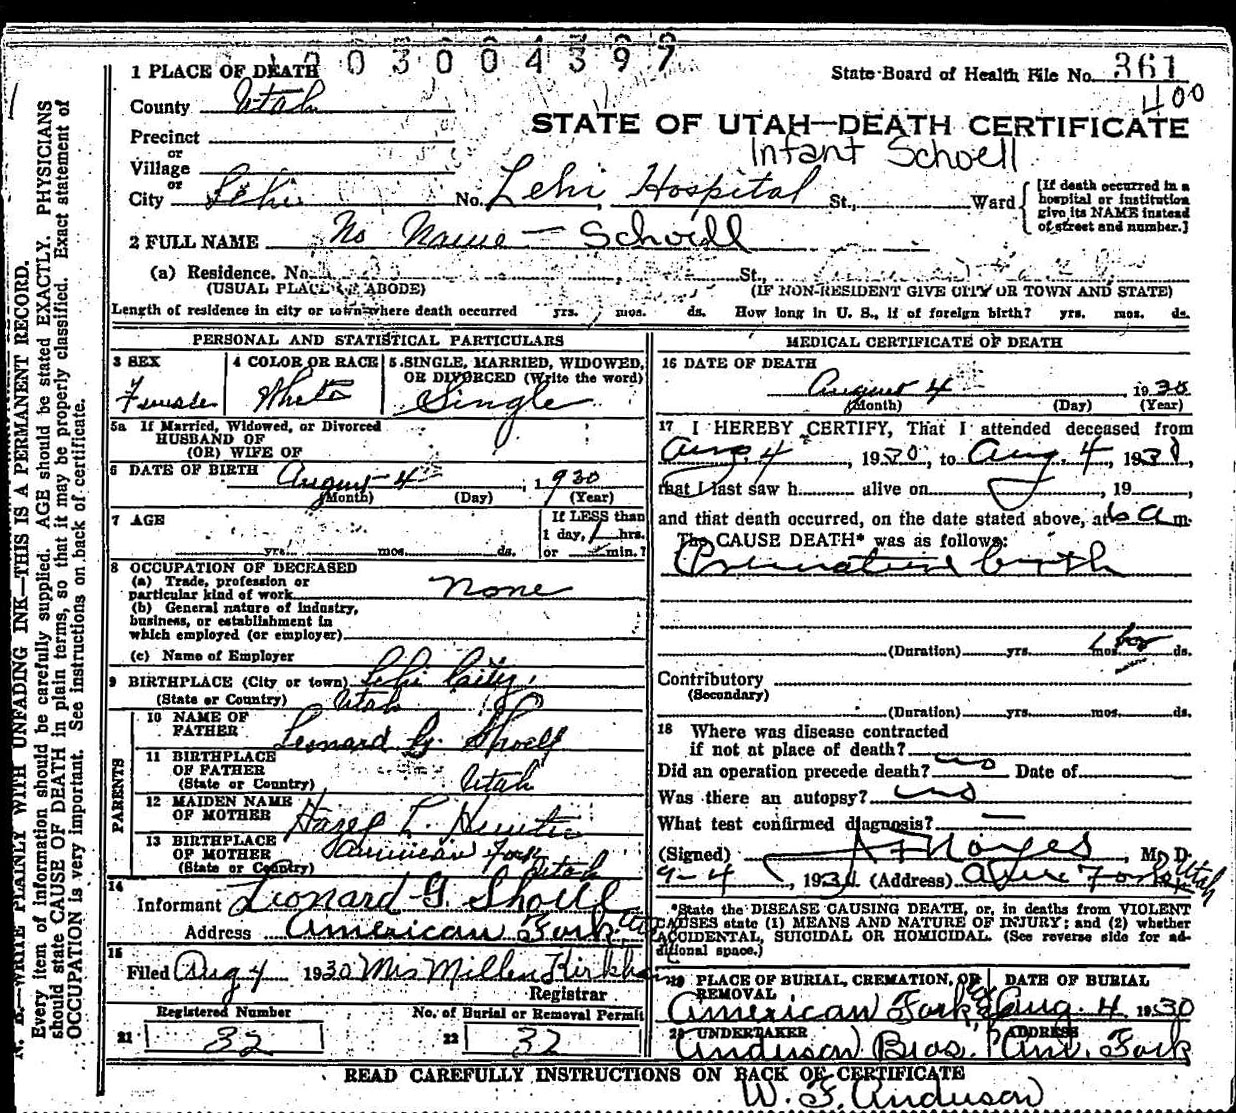 003004397
1 PLACE OF DEATH
State Board of Health File No. 361
400
County Utah
STATE OF UTAH—DEATH CERTIFICATE
Precinct
Infant Schoell
or
Village
or
City Lehi No. Lehi Hospital St., Ward
[If death occurred in a
hospital or institution
give its NAME instead
of street and number.]
2 FULL NAME No Name — Schoell
(a) Residence. No. St.,
(USUAL PLACE OF ABODE) (IF NON-RESIDENT GIVE CITY OR TOWN AND STATE)
Length of residence in city or town where death occurred yrs. mos. ds. How long in U. S., if of foreign birth? yrs. mos. ds.
PERSONAL AND STATISTICAL PARTICULARS
3 SEX 4 COLOR OR RACE 5 SINGLE, MARRIED, WIDOWED,
OR DIVORCED (Write the word)
Female White Single
5a If Married, Widowed, or Divorced
HUSBAND OF
(OR) WIFE OF
6 DATE OF BIRTH August 4, 1930
(Month) (Day) (Year)
7 AGE If LESS than
1 day, 1 hrs.
yrs. mos. ds. or min.?
8 OCCUPATION OF DECEASED
(a) Trade, profession or
particular kind of work None
(b) General nature of industry,
business, or establishment in
which employed (or employer)
(c) Name of Employer
9 BIRTHPLACE (City or town) Lehi City,
(State or Country) Utah
PARENTS
10 NAME OF
FATHER Leonard G. Shoell
11 BIRTHPLACE
OF FATHER
(State or Country) Utah
12 MAIDEN NAME
OF MOTHER Hazel L. Hunter
13 BIRTHPLACE
OF MOTHER American Fork
(State or Country) Utah
14
Informant Leonard G. Shoell
Address American Fork Utah
15
Filed Aug 4 1930 Mrs Millen Kirkham
Registrar
Registered Number No. of Burial or Removal Permit
21 32 22 32
MEDICAL CERTIFICATE OF DEATH
16 DATE OF DEATH
August 4 1930
(Month) (Day) (Year)
17 I HEREBY CERTIFY, That I attended deceased from
Aug. 4, 1930, to Aug. 4, 1930,
that I last saw h alive on , 19 ,
and that death occurred, on the date stated above, at 6 a m.
The CAUSE DEATH* was as follows:
Premature birth
(Duration) yrs. mos. 1 hr ds.
Contributory
(Secondary)
(Duration) yrs. mos. ds.
18 Where was disease contracted
if not at place of death?
Did an operation precede death? no Date of
Was there an autopsy? no
What test confirmed diagnosis? —
(Signed) Noyes, M. D.
9-4, 1930 (Address) Amer Fork Utah
*State the DISEASE CAUSING DEATH, or, in deaths from VIOLENT
CAUSES state (1) MEANS AND NATURE OF INJURY; and (2) whether
ACCIDENTAL, SUICIDAL OR HOMICIDAL. (See reverse side for ad-
ditional space.)
19 PLACE OF BURIAL, CREMATION, OR
REMOVAL DATE OF BURIAL
American Fork Aug. 4 1930
20 UNDERTAKER ADDRESS
Anderson Bros. Am. Fork
READ CAREFULLY INSTRUCTIONS ON BACK OF CERTIFICATE
W. F. Anderson
N. B.—WRITE PLAINLY WITH UNFADING INK—THIS IS A PERMANENT RECORD.
Every item of information should be carefully supplied. AGE should be stated EXACTLY. PHYSICIANS
should state CAUSE OF DEATH in plain terms, so that it may be properly classified. Exact statement of
OCCUPATION is very important. See instructions on back of certificate.